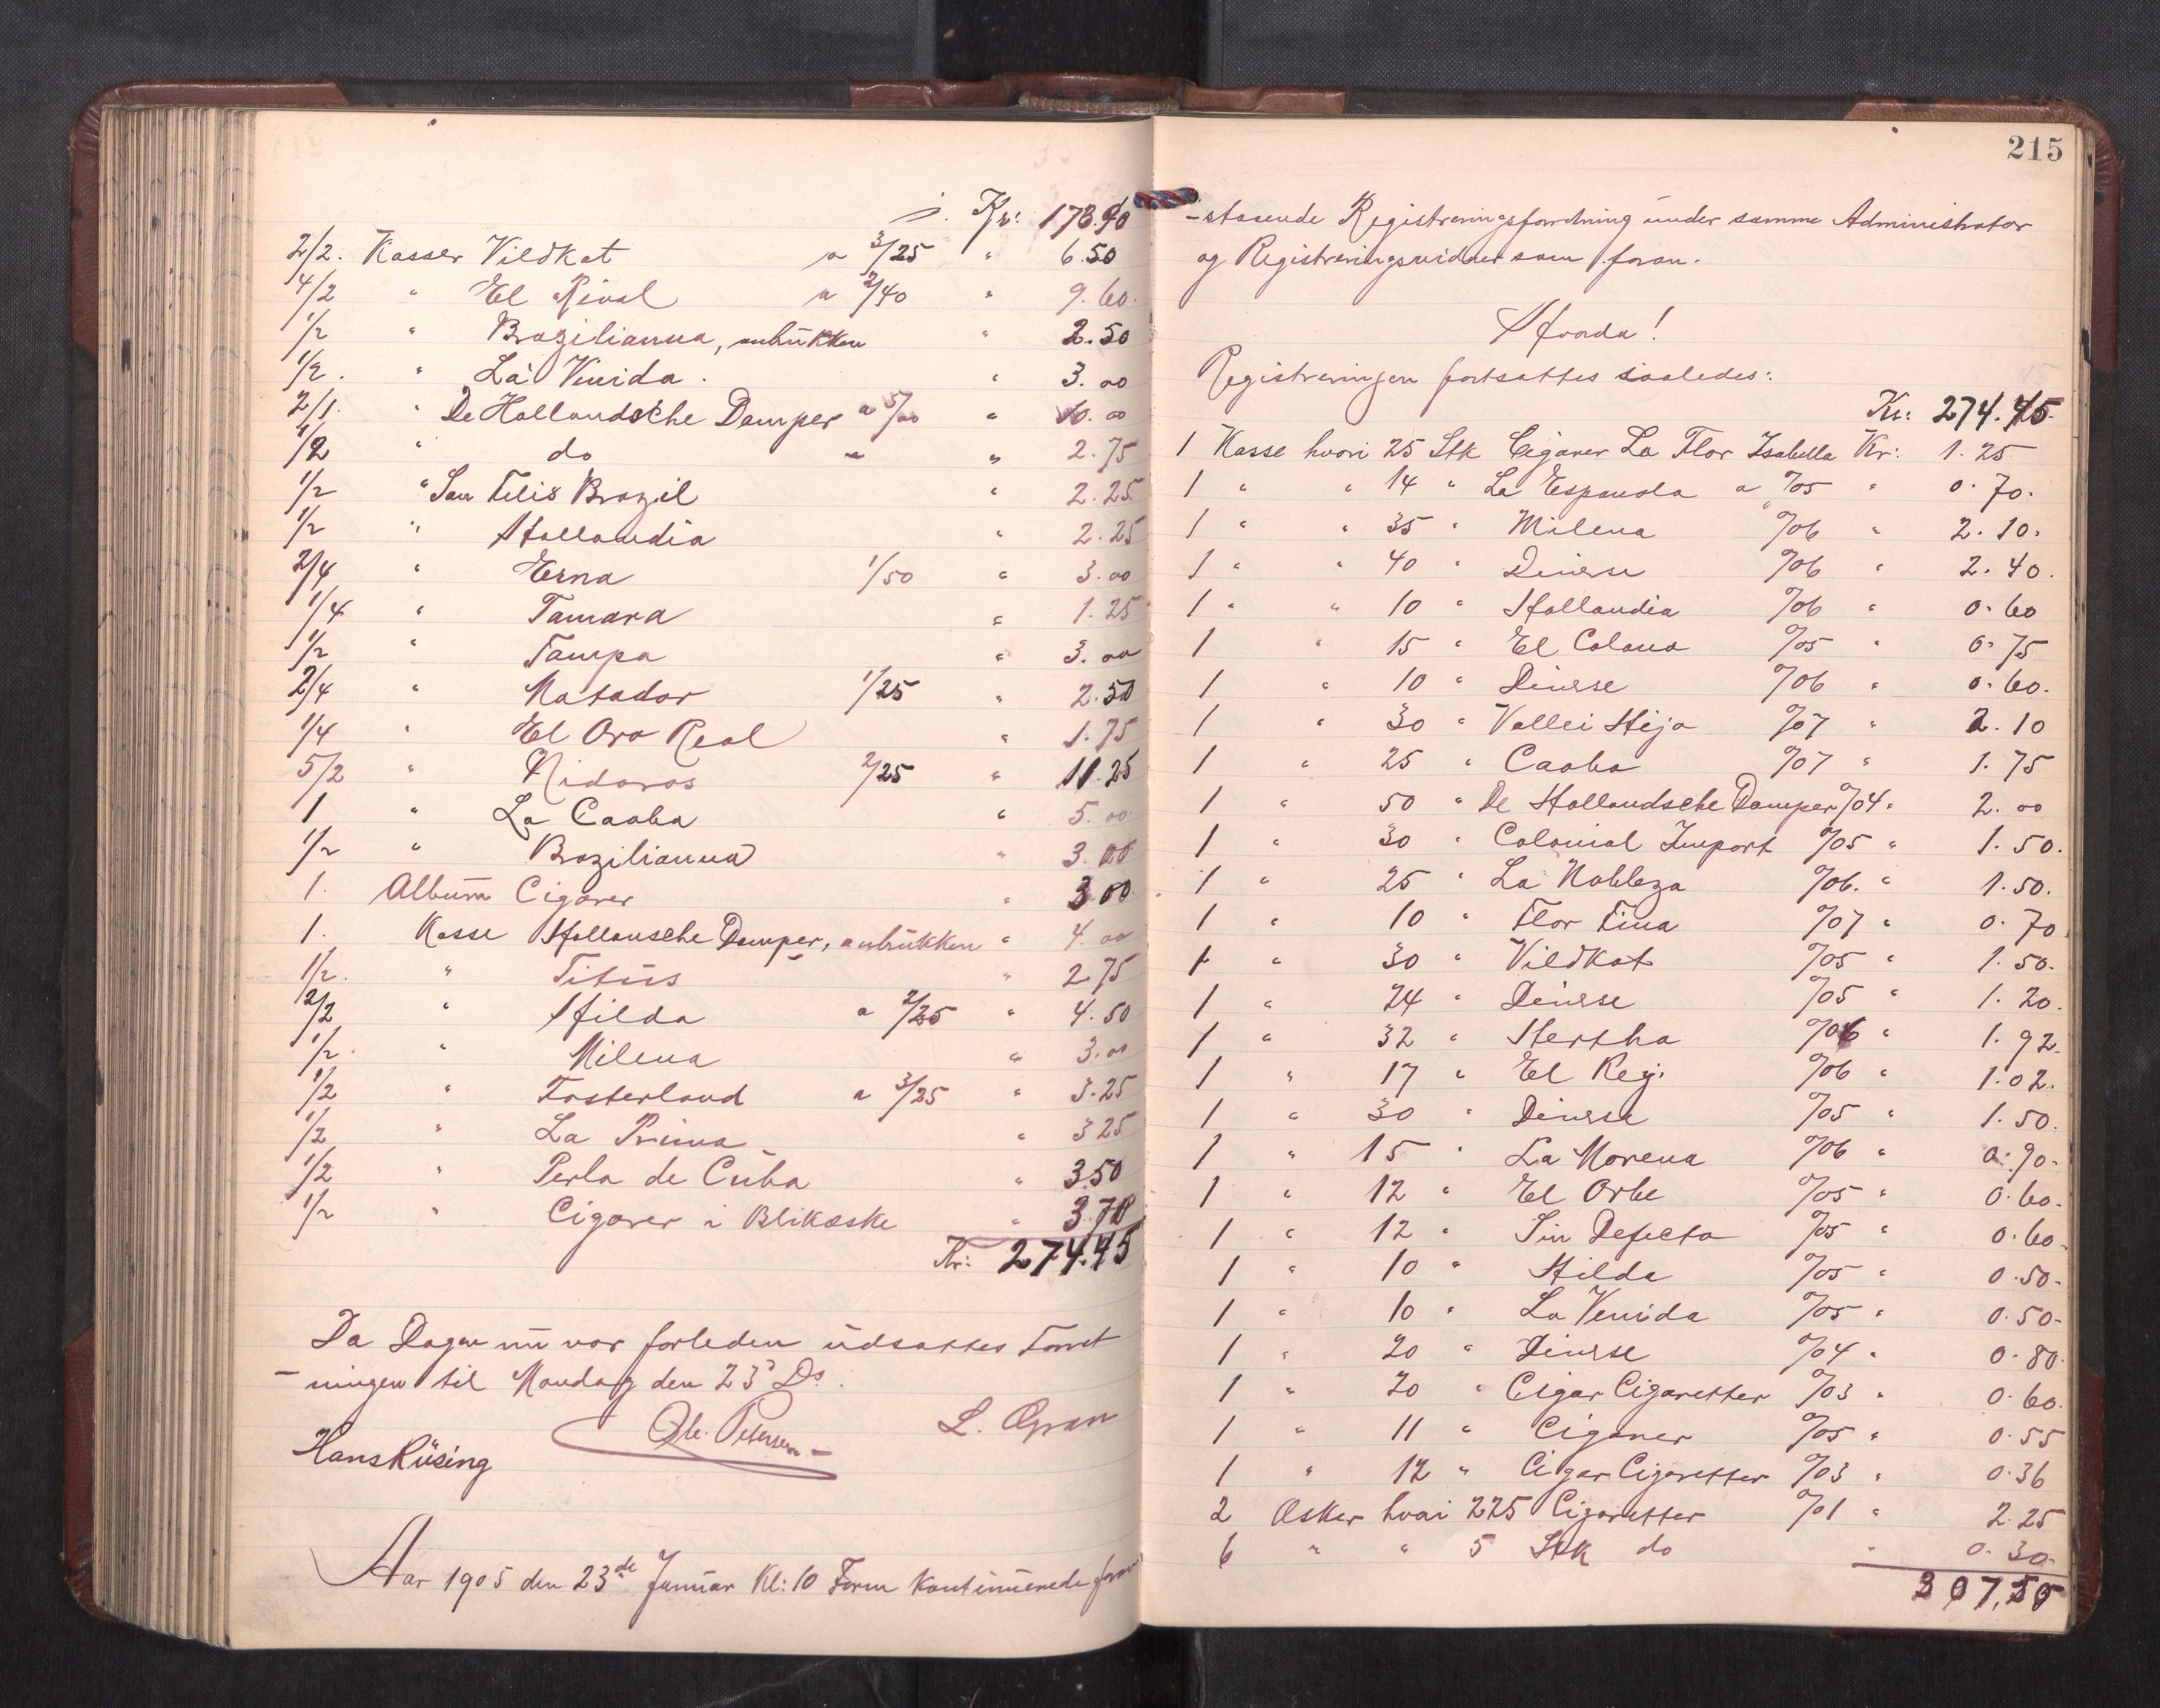 Kr: 173.90
2/2. Kasser Vildkat a 3/25 " 6.50
4/2 " El Rival a 2/40 " 9.60.
1/2 " Brazilianna, anbükken " 2.50
1/2. " La Venida. " 3.00
2/1. " De Hollandsche Damper a 5/00 " 10.00
1/2 " do " " 2.75
1/2 " San Felis Brazil " 2.25
1/2 " Hollandia " 2.25
2/4 " Erna 1/50 " 3.00
1/4 " Tamara " 1.25
1/2 " Tampa " 3.00
2/4 " Matador 1/25 " 2.50
1/4 " El Oro Real " 1.75
5/2 " Nidaros 2/25 " 11.25
1 " La Caoba " 5.00
1/2 " Brazilianna " 3.00
1. Album Cigarer " 3.00
1. Kasse Hollansche Damper, anbrükken " 4.00
1/2. " Titüs " 2.75
2/2 " Hilda a 2/25 " 4.50
1/2. " Milena " 3.00
1/2 " Fosterland a 3/25 " 3.25
1/2 " La Prima " 3.25
1/2 " Perla de Cüba " 3.50
1/2 " Cigarer i Blikæske " 3.70
Kr: 274.45
Da Dagen nü var forleden üdsattes Forret
-ningen til Mandag den 23' Ds.
Hans Rüsing Ole Petersen L. Gran
Aar 1905 den 23de Januar Kl: 10 Form Kontinuerede foran
215
-staaende Registreringsforretning ünder samme Administrator
og Registreringsvidner som foran.
Hvorda!
Registreringen fortsattes saaledes:
Kr: 274.45.
1 Kasse hvori 25 Stk Cigarer La Flor Isabella Kr: 1.25
1 " " 14 " La Espanola a %05 " 0.70.
1 " " 35 " Milena %06 " 2.10.
1 " " 40 " Diverse %06 " 2.40.
1 " " 10 " Hollandia %06 " 0.60
1 " 15 " El Colono %05 " 0.75
1 " 10 " Diverse %06 " 0.60.
1 " 30 " Vallei Hija %07 " 2.10
1 " 25 " Caoba %07 " 1.75
1 " 50 " De Hollandsche Damper %04 " 2.00
1 " 30 " Colonial Import %05 " 1.50.
1 " 25 " La Nobleza %06. " 1.50.
1 " 10 " Flor Fina %07 " 0.70
1 " 30 " Vildkat %05 " 1.50.
1 " 24 " Diverse %05 " 1.20.
1 " 32 " Hertha %06 " 1.92.
1 " 17 " El Rey. %06 " 1.02.
1 " 30 " Diverse %05 " 1.50.
1 " 15 " La Morena %06 " 0.90.
1 " 12 " El Orbe %05 " 0.60.
1 " 12 " Sin Defecto %05 " 0.60.
1 " 10 " Hilda %05 " 0.50.
1 " 10 " La Venida %05 " 0.50.
1 " 20 " Diverse %04 " 0.80.
1 " 20 " Cigar Cigaretter %03 " 0.60.
1 " 11 " Cigarer %05 " 0.55
1 " 12 " Cigar Cigaretter %03 " 0.36
2 Æsker hvori 225 Cigaretter %01 " 2.25
6 " " 5 Stk do " 0.30.
307,50